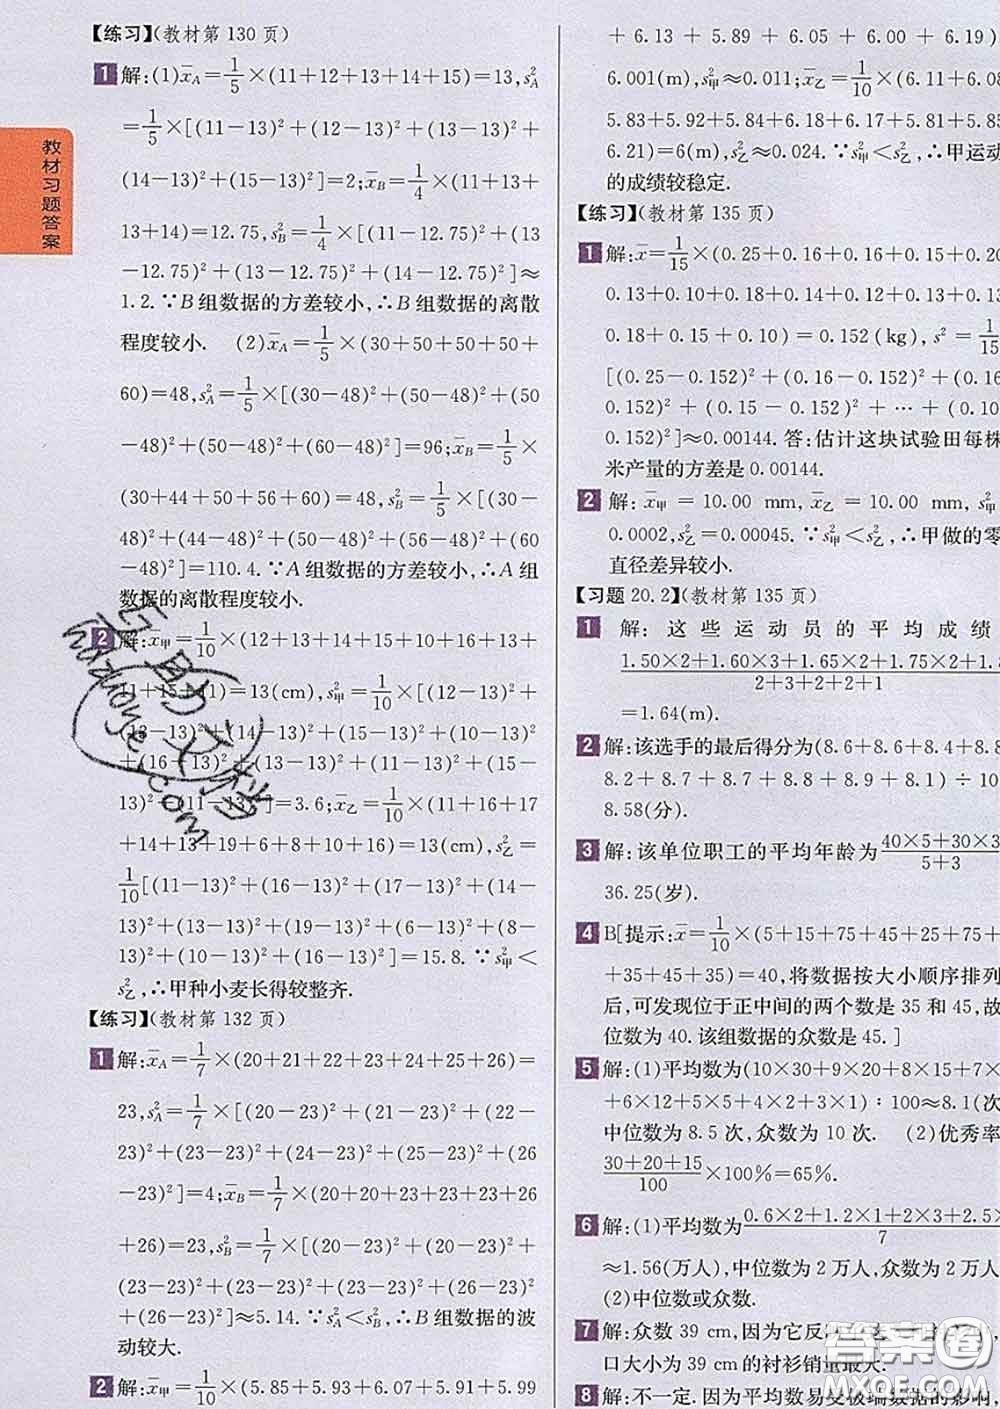 教材习题答案
【练习】(教材第 130 页)
1 解:(1)x̄_A=1/5×(11+12+13+14+15)=13,s²_A
=1/5×[(11-13)²+(12-13)²+(13-13)²+
(14-13)²+(15-13)²]=2;x̄_B=1/4×(11+13+
13+14)=12.75,s²_B=1/4×[(11-12.75)²+(13
-12.75)²+(13-12.75)²+(14-12.75)²]≈
1.2.∵B 组数据的方差较小,∴B 组数据的离散
程度较小. (2)x̄_A=1/5×(30+50+50+50+
60)=48,s²_A=1/5×[(30-48)²+(50-48)²+(50
-48)²+(50-48)²+(60-48)²]=96;x̄_B=1/5×
(30+44+50+56+60)=48,s²_B=1/5×[(30-
48)²+(44-48)²+(50-48)²+(56-48)²+(60
-48)²]=110.4.∵A 组数据的方差较小,∴A 组
数据的离散程度较小.
2 解:x̄甲=1/10×(12+13+14+15+10+16+13+
11+15+11)=13(cm),s²甲=1/10×[(12-13)²+
(13-13)²+(14-13)²+(15-13)²+(10-13)²
+(16-13)²+(13-13)²+(11-13)²+(15-
13)²+(11-13)²]=3.6;x̄乙=1/10×(11+16+17
+14+13+19+6+8+10+16)=13(cm),s²乙=
1/10[(11-13)²+(16-13)²+(17-13)²+(14-
13)²+(13-13)²+(19-13)²+(6-13)²+(8-
13)²+(10-13)²+(16-13)²]=15.8.∵s²甲<
s²乙,∴甲种小麦长得较整齐.
【练习】(教材第 132 页)
1 解:x̄_A=1/7×(20+21+22+23+24+25+26)=
23,s²_A=1/7×[(20-23)²+(21-23)²+(22-
23)²+(23-23)²+(24-23)²+(25-23)²+(26
-23)²]=4;x̄_B=1/7×(20+20+23+23+23+26
+26)=23,s²_B=1/7×[(20-23)²+(20-23)²+
(23-23)²+(23-23)²+(23-23)²+(26-23)²
+(26-23)²]≈5.14.∵s²_A<s²_B,∴B 组数据的波
动较大.
2 解:x̄甲=1/10×(5.85+5.93+6.07+5.91+5.99
+ 6.13 + 5.89 + 6.05 + 6.00 + 6.19)
6.001(m),s²甲≈0.011;x̄乙=1/10×(6.11+6.08
5.83+5.92+5.84+6.18+6.17+5.81+5.85
6.21)=6(m),s²乙≈0.024.∵s²甲<s²乙,∴甲运动
的成绩较稳定.
【练习】(教材第 135 页)
1 解:x̄=1/15×(0.25+0.16+0.16+0.15+0.20
0.13+0.10+0.18+0.14+0.12+0.10+0.13
0.18+0.15+0.10)=0.152(kg),s²=1/15
[(0.25-0.152)²+(0.16-0.152)²+(0.16
0.152)²+(0.15-0.152)²+…+(0.10
0.152)²]≈0.00144.答:估计这块试验田每株
米产量的方差是 0.00144.
2 解:x̄甲=10.00 mm,x̄乙=10.00 mm,s²甲
0.0002,s²乙=0.00045.∵s²甲<s²乙,∴甲做的零
直径差异较小.
【习题 20.2】(教材第 135 页)
1 解:这些运动员的平均成绩
(1.50×2+1.60×3+1.65×2+1.75×2+1.8)/(2+3+2+2+1)
=1.64(m).
2 解:该选手的最后得分为(8.6+8.6+8.4+8.8
8.2+8.7+8.7+8.8+8.9+8.1)÷10
8.58(分).
3 解:该单位职工的平均年龄为(40×5+30×3)/(5+3)
36.25(岁).
4 B[提示:x̄=1/10×(5+15+75+45+25+75+
+35+45+35)=40,将数据按大小顺序排列
后,可发现位于正中间的两个数是 35 和 45,故
位数为 40.该组数据的众数是 45.]
5 解:(1)平均数为(10×30+9×20+8×15+7×
+6×12+5×5+4×2+3×1)∶100≈8.1(次
中位数为 8.5 次,众数为 10 次. (2)优秀率
(30+20+15)/100×100%=65%.
6 解:(1)平均数为(0.6×2+1.2×1+2×3+2.5×)/7
≈1.56(万人),中位数为 2 万人,众数为 2 万人
(2)中位数或众数.
7 解:众数 39 cm,因为它反
口大小为 39 cm 的衬衫销量最大.
8 解:不一定.因为平均数易受极端数据的影响,
答案圈
MXQE.COM